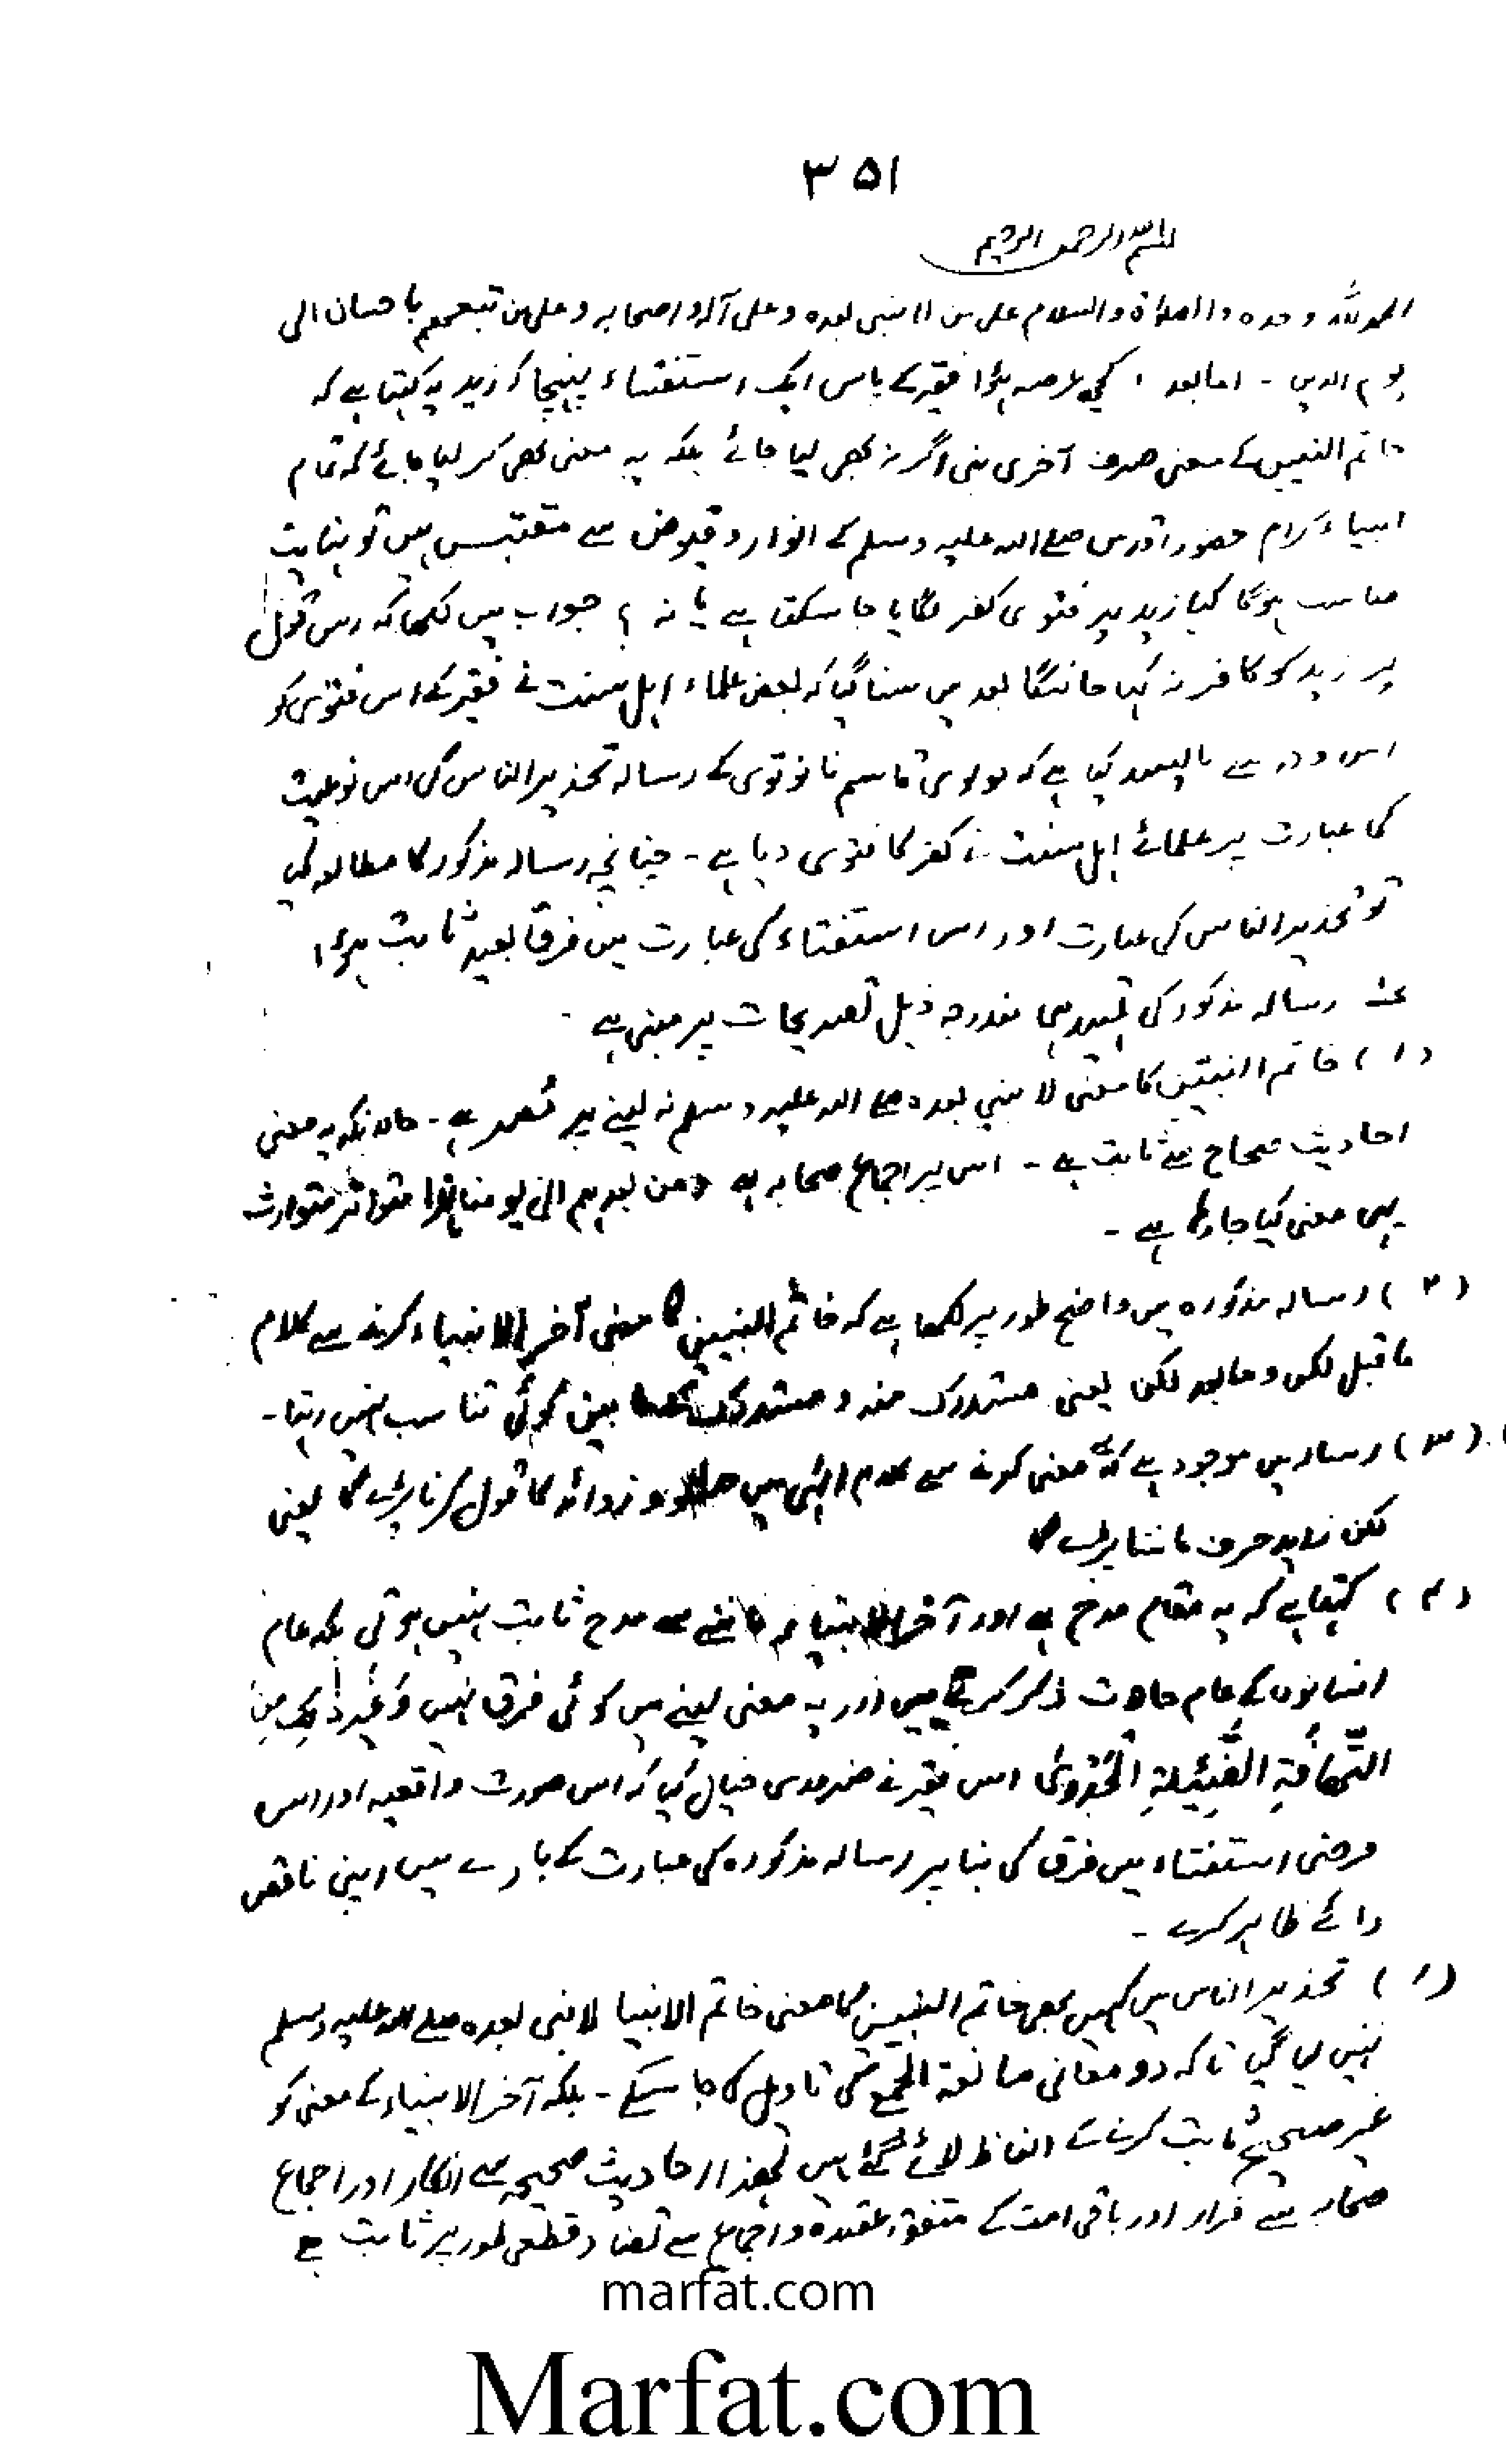 ۳۵۱
بسم اللہ الرحمن الرحیم
الحمدللہ وحدہ والصلوٰۃ والسلام علی من لا نبی بعدہ وعلی آلہ واصحابہ وعلی من تبعھم باحسان الی
یوم الدین - امابعد ، کچھ عرصہ ہوا فقیر کے پاس ایک استفتاء پہنچا کہ زید یہ کہتا ہے کہ
خاتم النبیین کے معنی صرف آخری نبی اگر نہ بھی لیا جائے بلکہ یہ معنی بھی کر لیا جائے کہ تمام
انبیاء کرام حضور اقدس صلے اللہ علیہ وسلم کے انوار و فیوض سے مقتبس ہیں تو نہایت
مناسب ہوگا کیا زید پر فتوی کفر لگایا جا سکتا ہے یا نہ ؟ جواب میں لکھا کہ اس قول
پر زید کو کافر نہ کہا جائیگا بعد میں سنا گیا کہ بعض علماء اہل سنت نے فقیر کے اس فتویٰ کو
اس وجہ سے ناپسند کیا ہے کہ مولوی قاسم نانوتوی کے رسالہ تحذیرالناس کی اس نوعیت
کی عبارت پر علمائے اہل سنت نے کفر کا فتوی دیا ہے - چنانچہ رسالہ مذکور کا مطالعہ کیا
تو تحذیرالناس کی عبارت اور اس استفتاء کی عبارت میں فرق بعید ثابت ہوا
رسالہ مذکور کی تمہید ہی مندرجہ ذیل تصریحات پر مبنی ہے -
(۱) خاتم النبیین کا معنی لا نبی بعدہ صلے اللہ علیہ وسلم نہ لینے پر مُصر ہے - حالانکہ یہ معنی
احادیث صحاح سے ثابت ہے - اس پر اجماع صحابہ ہے ومن بعدہم الی یومنا ہذا متواتر متوارث
یہی معنی کیا جا رہا ہے -
(۲) رسالہ مذکورہ میں واضح طور پر لکھا ہے کہ خاتم النبیین کا معنی آخر الانبیاء کرنے سے کلام
ماقبل لکن و مابعد لکن یعنی مستدرک منہ و مستدرک کے مابین کوئی تناسب نہیں رہتا -
(۳) رسالہ میں موجود ہے کہ یہ معنی کرنے سے کلام الٰہی میں حشو و زوائد کا قول کرنا پڑے گا یعنی
لکن زاید حرف ماننا پڑے گا
(۴) کہتا ہے کہ یہ مقام مدح ہے اور آخر الانبیا ماننے سے مدح ثابت نہیں ہوتی بلکہ عام
انسانوں کے عام حالات ذکر کرنے میں اور یہ معنی لینے میں کوئی فرق نہیں وَغَیر ذٰلِکَ مِن
اس فقیر نے ضروری خیال کیا کہ اس صورت واقعیہ اور اس
فرضی استفتاء میں فرق کی بنا پر رسالہ مذکورہ کی عبارت کے بارے میں اپنی ناقص
رائے ظاہر کرے -
(۱) تحذیر الناس میں کہیں بھی خاتم النبیین کا معنی خاتم الانبیا لا نبی بعدہ صلے اللہ علیہ وسلم
نہیں لیا گیا تاکہ دو معانی مانعۃ الجمع کی تاویل کی جا سکے - بلکہ آخر الانبیاء کے معنی کو
غیر صحیح ثابت کرنے کے الفاظ لائے گئے ہیں لھذا احادیث صحیحہ سے انکار اور اجماع
صحابہ سے فرار اور باقی امت کے متفقہ عقیدہ و اجماع سے تضاد قطعی طور پر ثابت ہے
marfat.com
Marfat.com